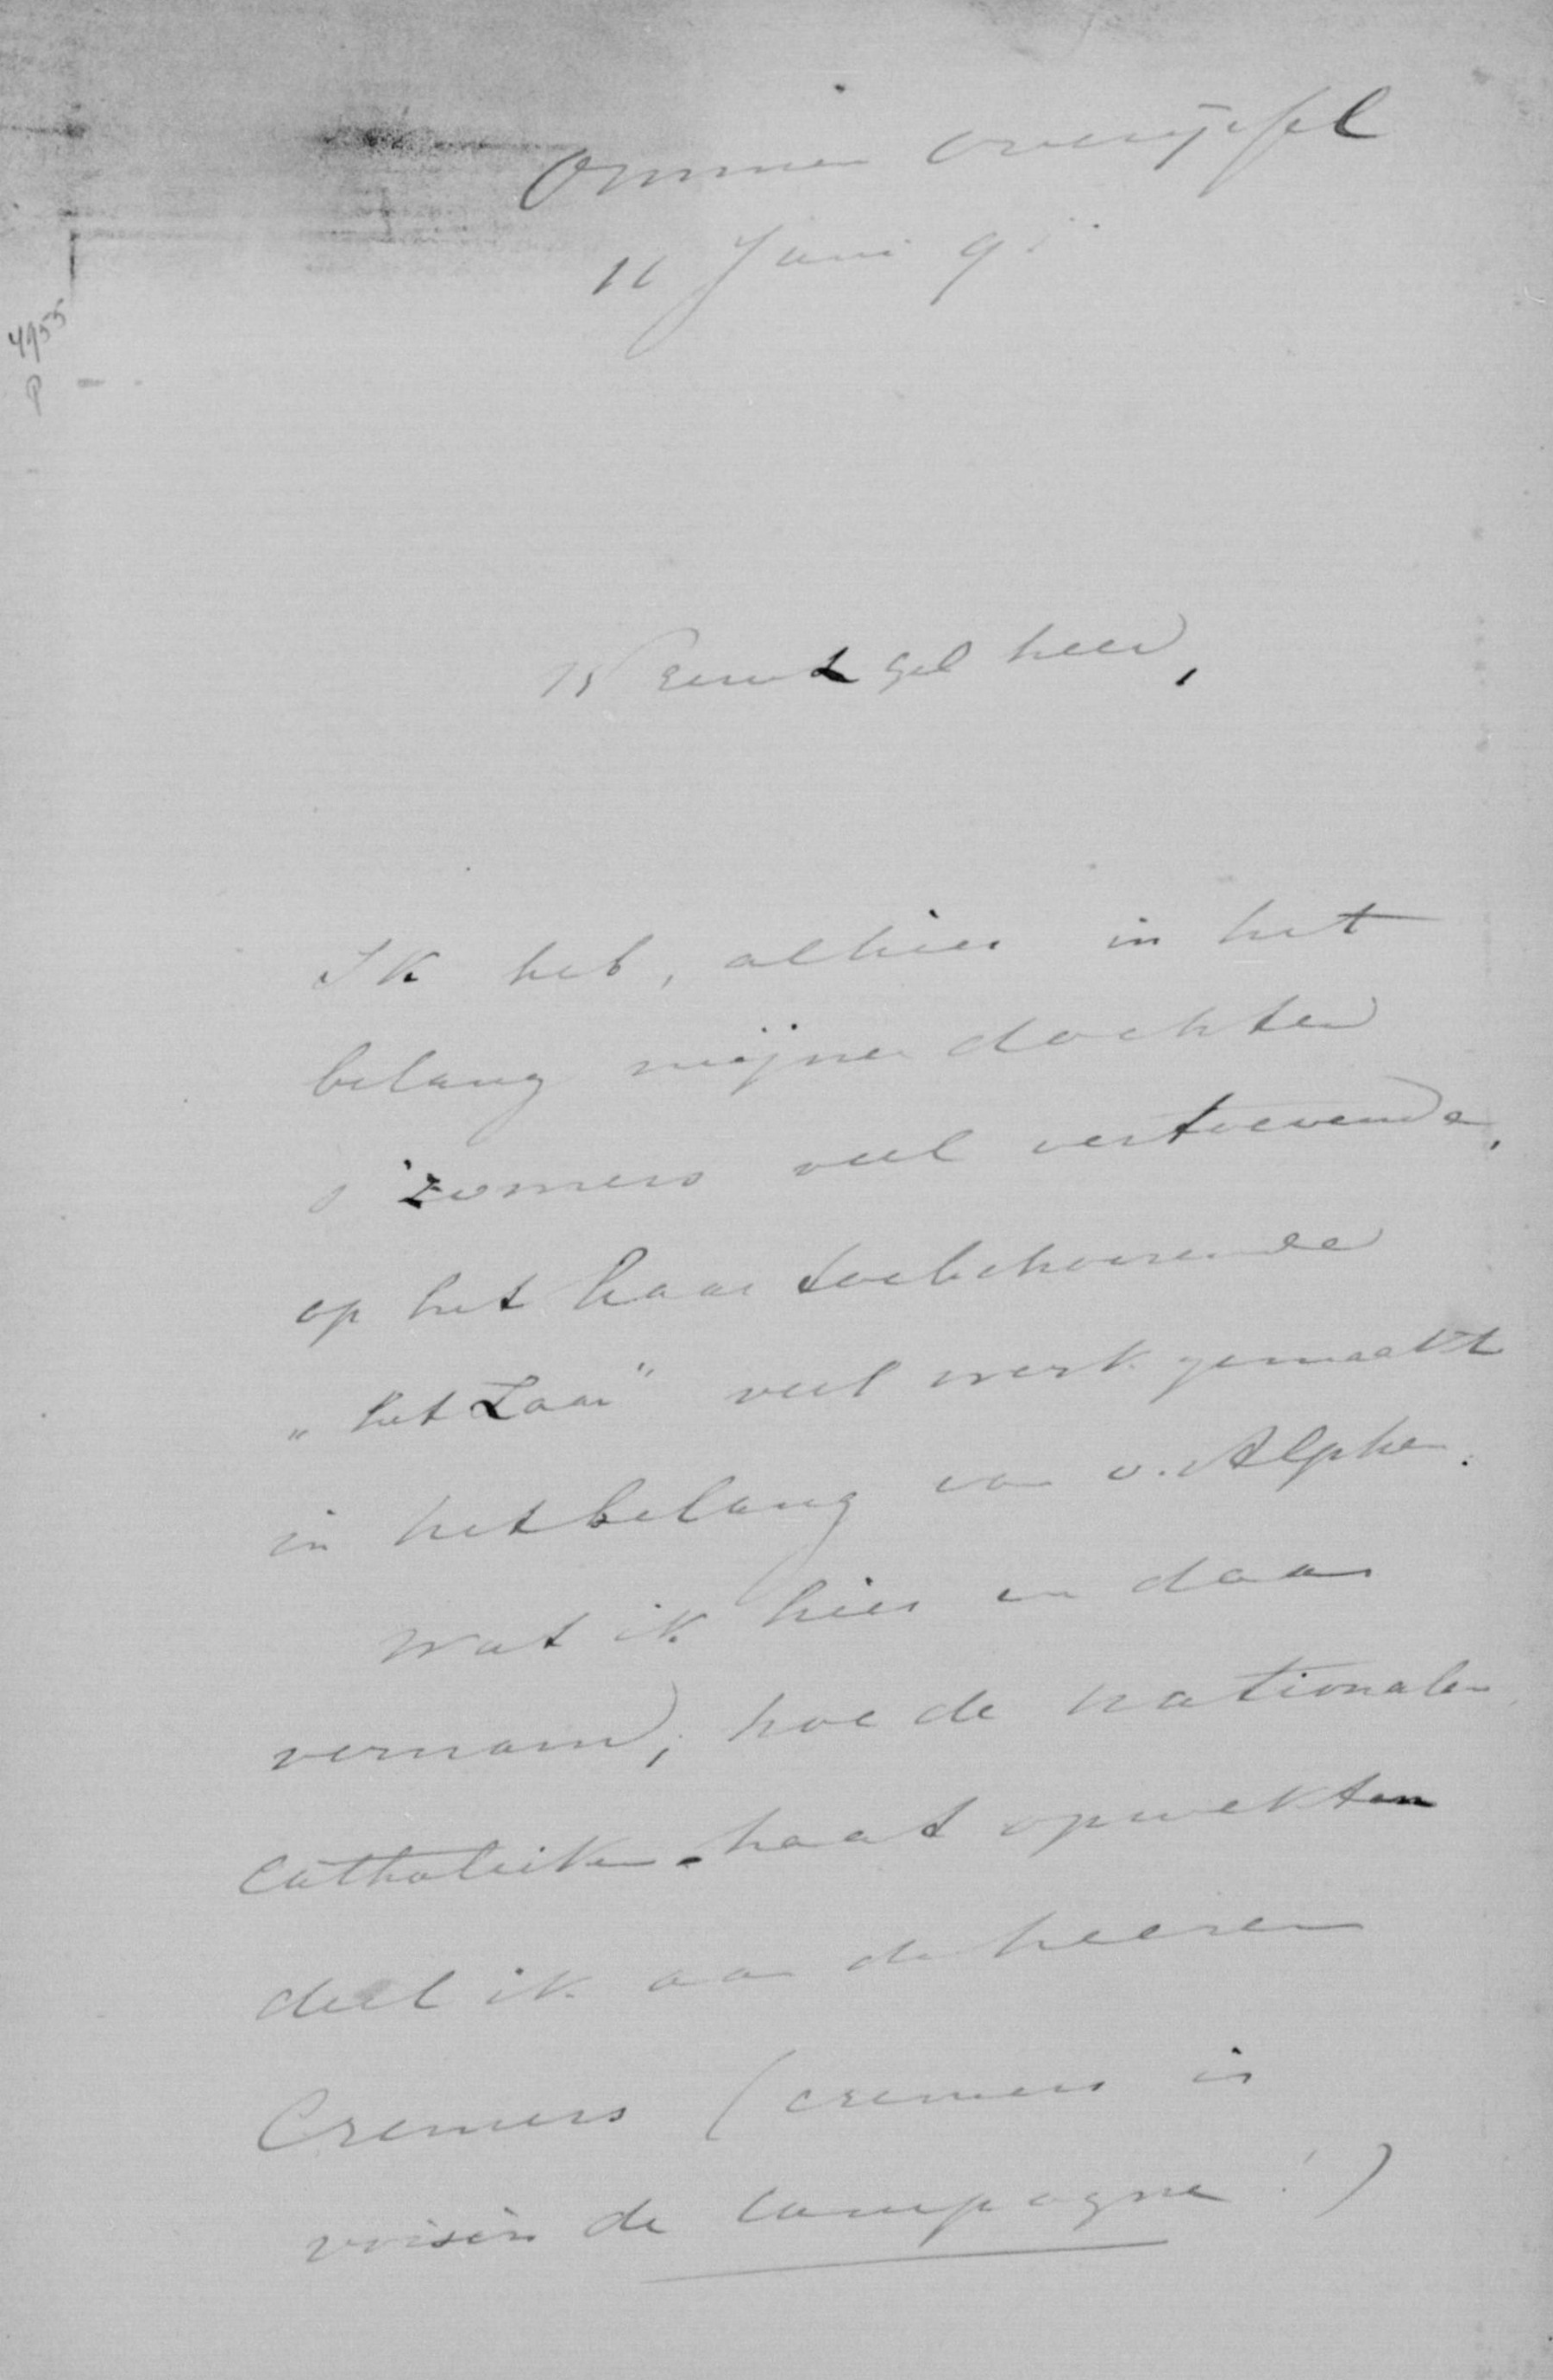 Ommen Overijssel
11 Juni 91.
4955
P
WelEd Gel heer,
Ik heb, alhier in het
belang mijner dochter
s'zomers veel vertoevende,
op het haar toebehoorende
„het Laar" veel werk gemaakt
in het belang van v. Alphen.
Wat ik hier en daar
vernam, hoe de nationalen
Catholieken-haat opwekten
deel ik aan de heeren
Cremers (Cremers is
voisin de Campagne!)